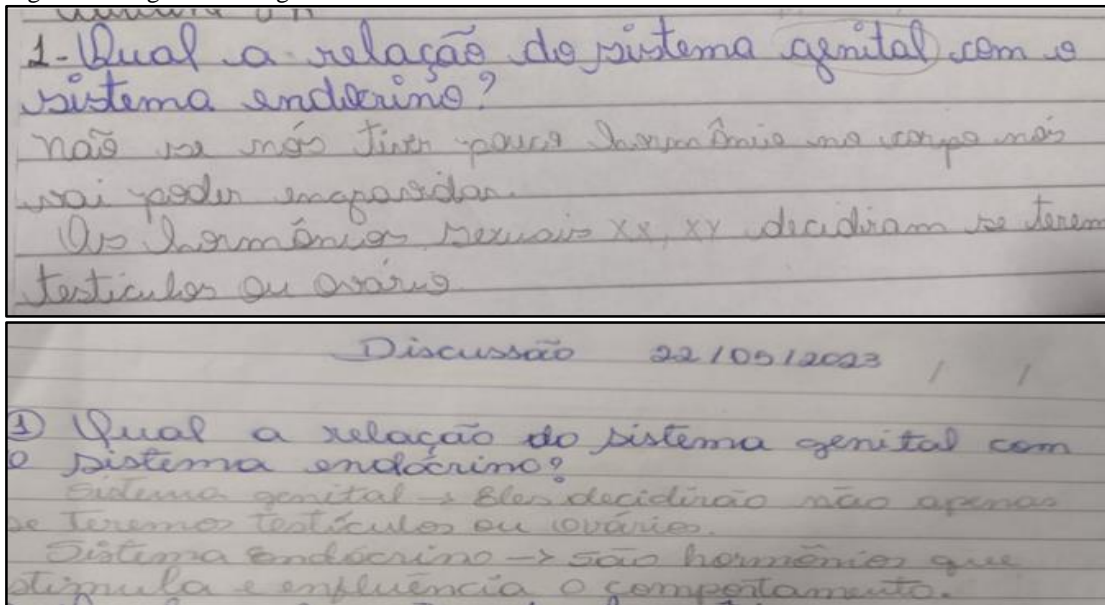 1- Qual a relação do sistema genital com o
sistema endócrino?
não se nós tiver pouco hormônio no corpo nós
vai poder engravidar.
Os hormônios sexuais XX, XY decidiram se terem
testículos ou ovário
Discussão 22/05/2023 / /
① Qual a relação do sistema genital com
o sistema endócrino?
Sistema genital → Eles decidirão não apenas
se Teremos testículos ou ovários.
Sistema Endócrino → São hormônios que
stimula e enfluência o comportamento.